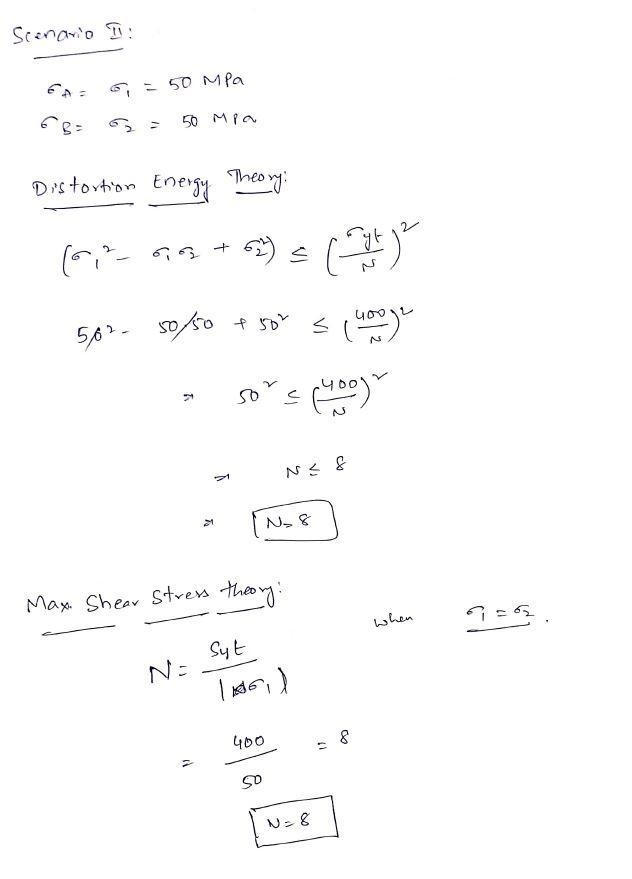 Scenario II:
σA = σ1 = 50 MPa
σB = σ2 = 50 MPa
Distortion Energy Theory:
(σ1² - σ1 σ2 + σ2²) ≤ (σyt/N)²
50² - 50/50 + 50² ≤ (400/N)²
⇒ 50² ≤ (400/N)²
⇒ N ≤ 8
⇒ N = 8
Max. Shear Stress theory: when σ1 = σ2.
N = Syt / |σ1|
= 400/50 = 8
N = 8